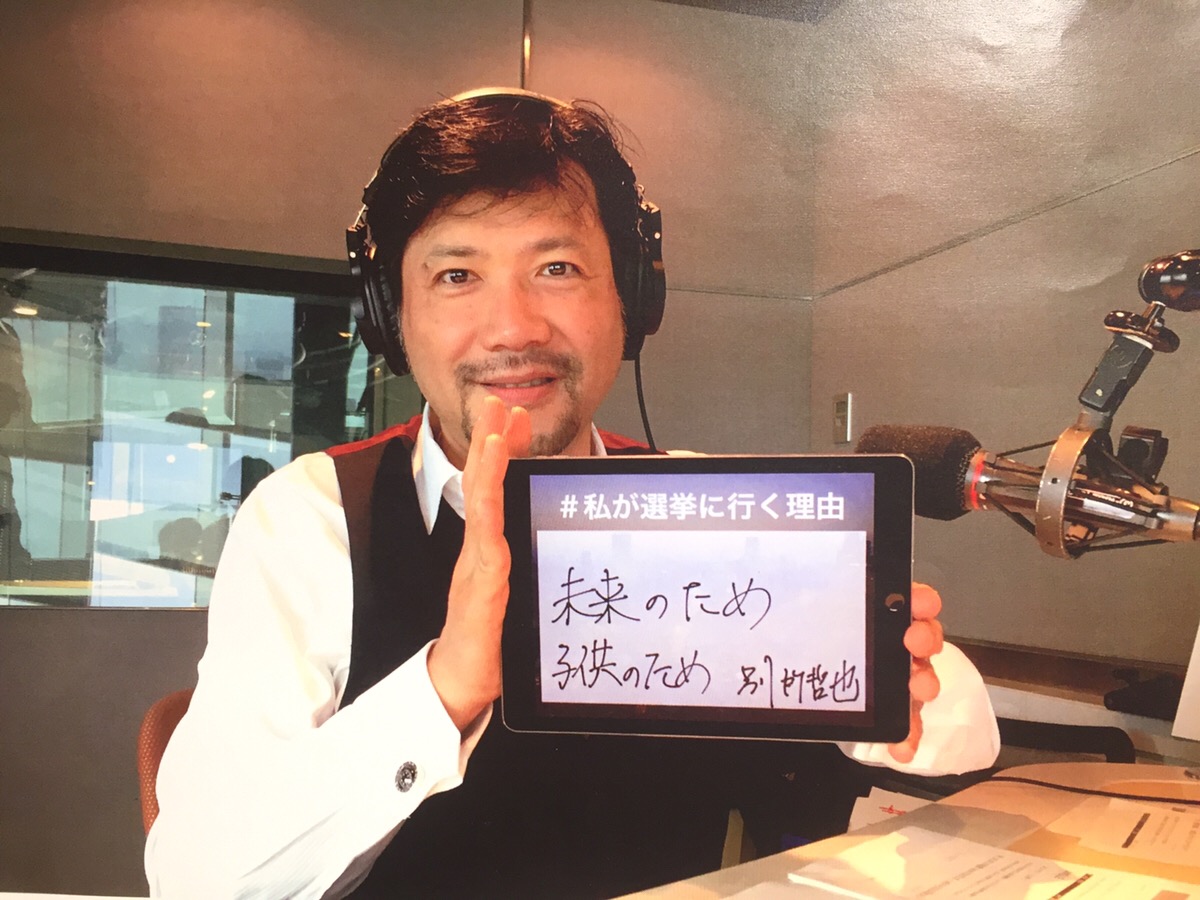 #私が選挙に行く理由
未来のため
子供のため 別所哲也